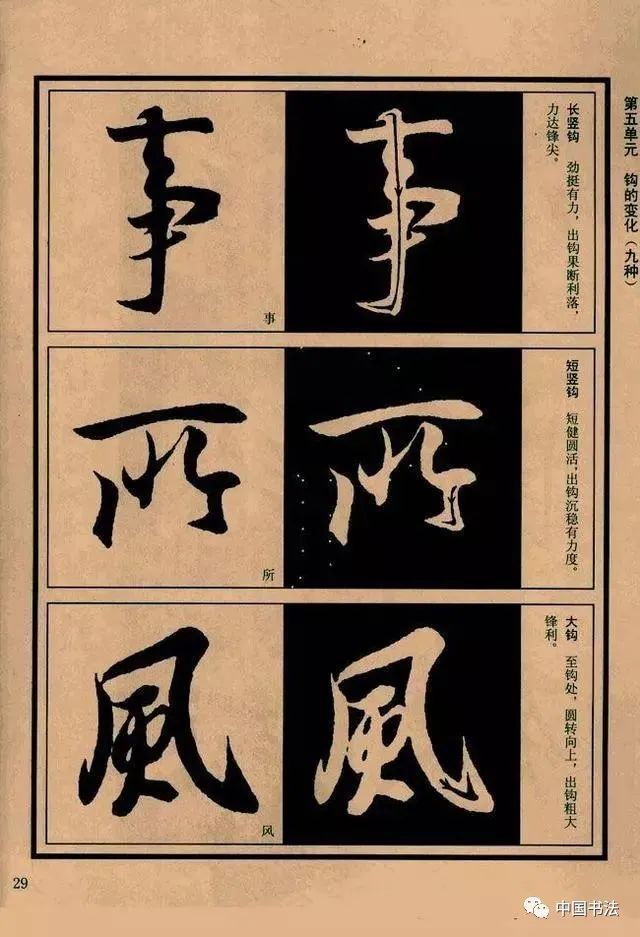 第五单元 钩的变化（九种）
长竖钩 劲挺有力，出钩果断利落，
力达锋尖。
事
事
事
短竖钩 短健圆活，出钩沉稳有力度。
所
所
所
大钩 至钩处，圆转向上，出钩粗大
锋利。
風
風
风
29
中国书法